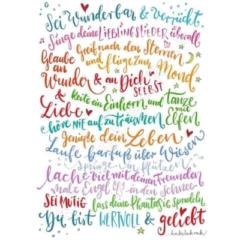 Sei Wunderbar & verrückt
Singe deine LIEBLINGSLIEDER überall
Greif nach den Sternen
Glaube und fliege zum Mond
an
Wunder & an Dich
SELBST
&
Liebe Reite ein Einhorn und tanze mit
höre nie auf zu träumen Elfen
Genieße dein Leben
Laufe barfuß über Wiesen
springe in Pfützen
lache viel mit deinen Freunden
male Engel in den Schnee
SEI MUTIG lass deine Phantasie sprudeln
Du bist WERTVOLL & geliebt